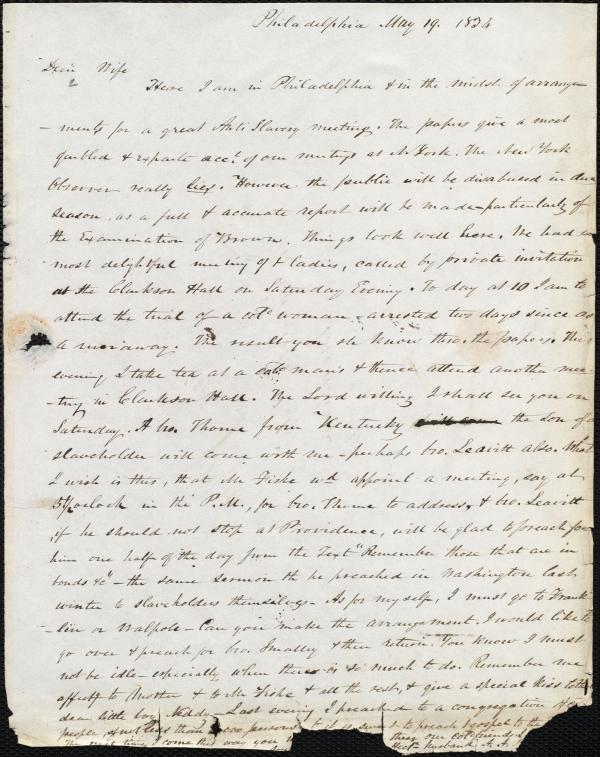 Philadelphia May 19. 1834
Dear Wife
Here I am in Philadelphia & in the midst of arrange-
-ments for a great Anti Slavery meeting. The papers give a most
garbled & exparte acct. of our meetings at N. York. The New York
Observer really lies. However the public will be disabused in due
season, as a full & accurate report will be made particularly of
the Examination of Brown. Things look well here. We had a
most delightful meeting of & ladies, called by private invitation
at the Clarkson Hall on Saturday Evening. To day at 10 I am to
attend the trial of a cold. woman arrested two days since as
a runaway. The result you sh. know thro. the papers. This
evening I take tea at a cold. man's & thence attend another mee-
-ting in Clarkson Hall. The Lord willing I shall see you on
Saturday. A bro. Thome from Kentucky the son of a
slaveholder will come with me - perhaps bro. Leavitt also. What
I wish is this, that Mr Fiske wd. appoint a meeting, say at
5 oclock in the P.M., for bro. Thome to address, & bro. Leavitt
if he should not stop at Providence, will be glad to preach for
him one half of the day from the Text "Remember those that are in
bonds &c" - the same sermon th. he preached in Washington last
winter to slaveholders themselves. As for myself, I must go to Frank-
-lin or Walpole - Can you make the arrangement, I would like to
go over & preach for bro. Smalley & then return. You know I must
not be idle - especially when there is so much to do. Remember me
affectly to Mother & to Mr Fiske & all the rest, & give a special kiss to the
dear little boy Neddy - Last evening I preached to a congregation of
people, of not less than persons to preach gospel to the
The next time I come this way you our cold. friends
Husband A. A.